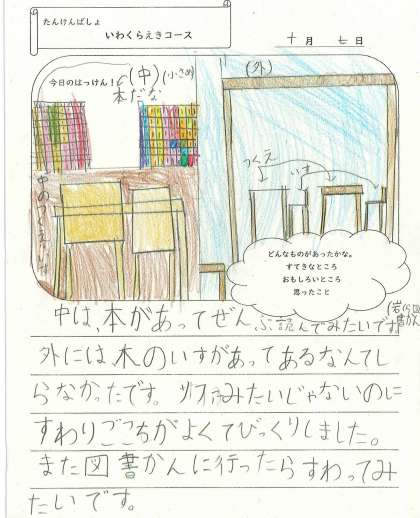 たんけんばしょ
いわくらえきコース
十月 七日
今日のはっけん！
(中)(小さめ)
本だな
(外)
つくえ
いす
どんなものがあったかな。
すてきなところ
おもしろいところ
思ったこと
中は、本があってぜんぶ読んでみたいです。
外には、木のいすがあってあるなんてし
らなかったです。ソファみたいじゃないのに
すわりごこちがよくてびっくりしました。
また図書かんに行ったらすわってみ
たいです。